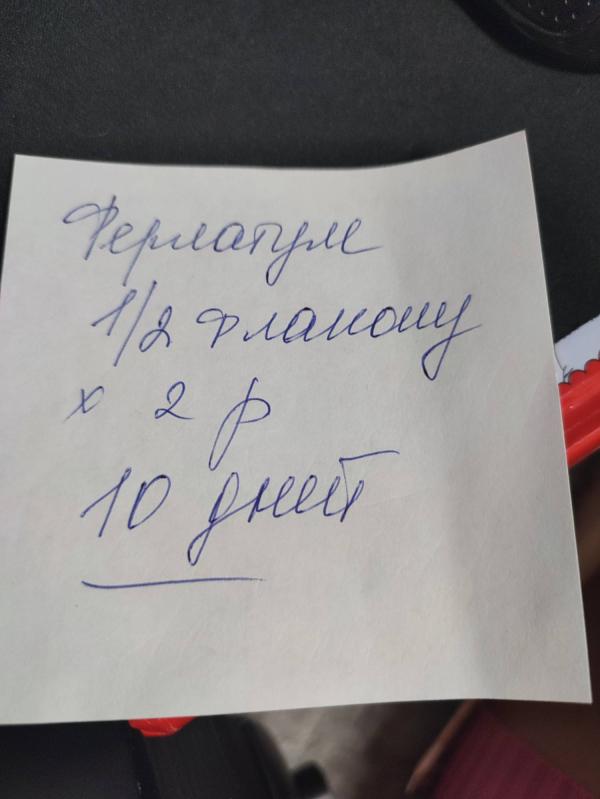 Ферлатум
1/2 флакону
x 2 р
10 дней